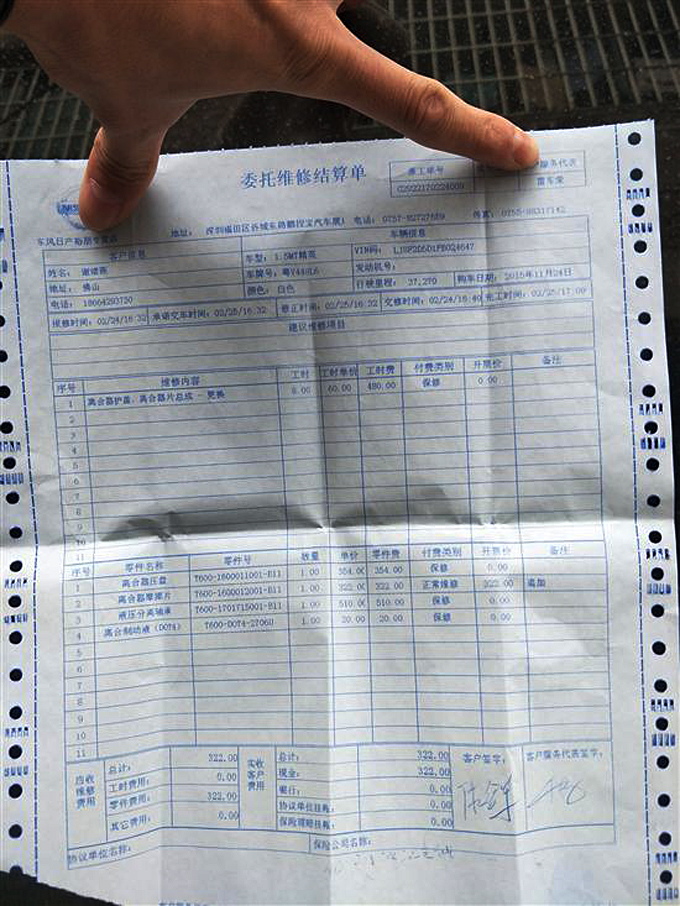 委托维修结算单
派工单号
服务代表
地址:
电话: 0757-82727889
传真: 0755-88317142
客户信息
车辆信息
姓名:
车型: 1.5MT精英
VIN码:
地址: 佛山
车牌号:
发动机号:
电话: 18664293750
颜色: 白色
行驶里程: 37,270
购车日期: 2015年11月24日
报修时间: 02/24/16:32
承诺交车时间: 02/25/16:32
修正时间: 02/25/16:32
交修时间: 02/24/16:40
完工时间: 02/25/17:00
建议维修项目
序号 维修内容 工时 工时单价 工时费 付费类别 开票价 备注
1 离合器护盖、离合器片总成 - 更换 8.00 60.00 480.00 保修 0.00
2
3
4
5
6
7
8
9
10
11
序号 零件名称 零件号 数量 单价 零件费 付费类别 开票价 备注
1 离合器压盘 T600-1600011001-B11 1.00 354.00 354.00 保修 0.00
2 离合器摩擦片 T600-1600012001-B11 1.00 322.00 322.00 正常维修 322.00 追加
3 液压分离轴承 T600-1701715001-B11 1.00 510.00 510.00 保修 0.00
4 离合制动液(DOT4) T600-DOT4-2706U 1.00 20.00 20.00 保修 0.00
5
6
7
8
9
10
11
应收维修费用
总计: 322.00
工时费用: 0.00
零件费用: 322.00
其它费用: 0.00
实收客户费用
总计: 322.00
现金: 322.00
银行: 0.00
协议单位挂帐: 0.00
保险理赔挂帐: 0.00
客户签字:
客户服务代表签字:
协议单位名称:
保险公司名称: